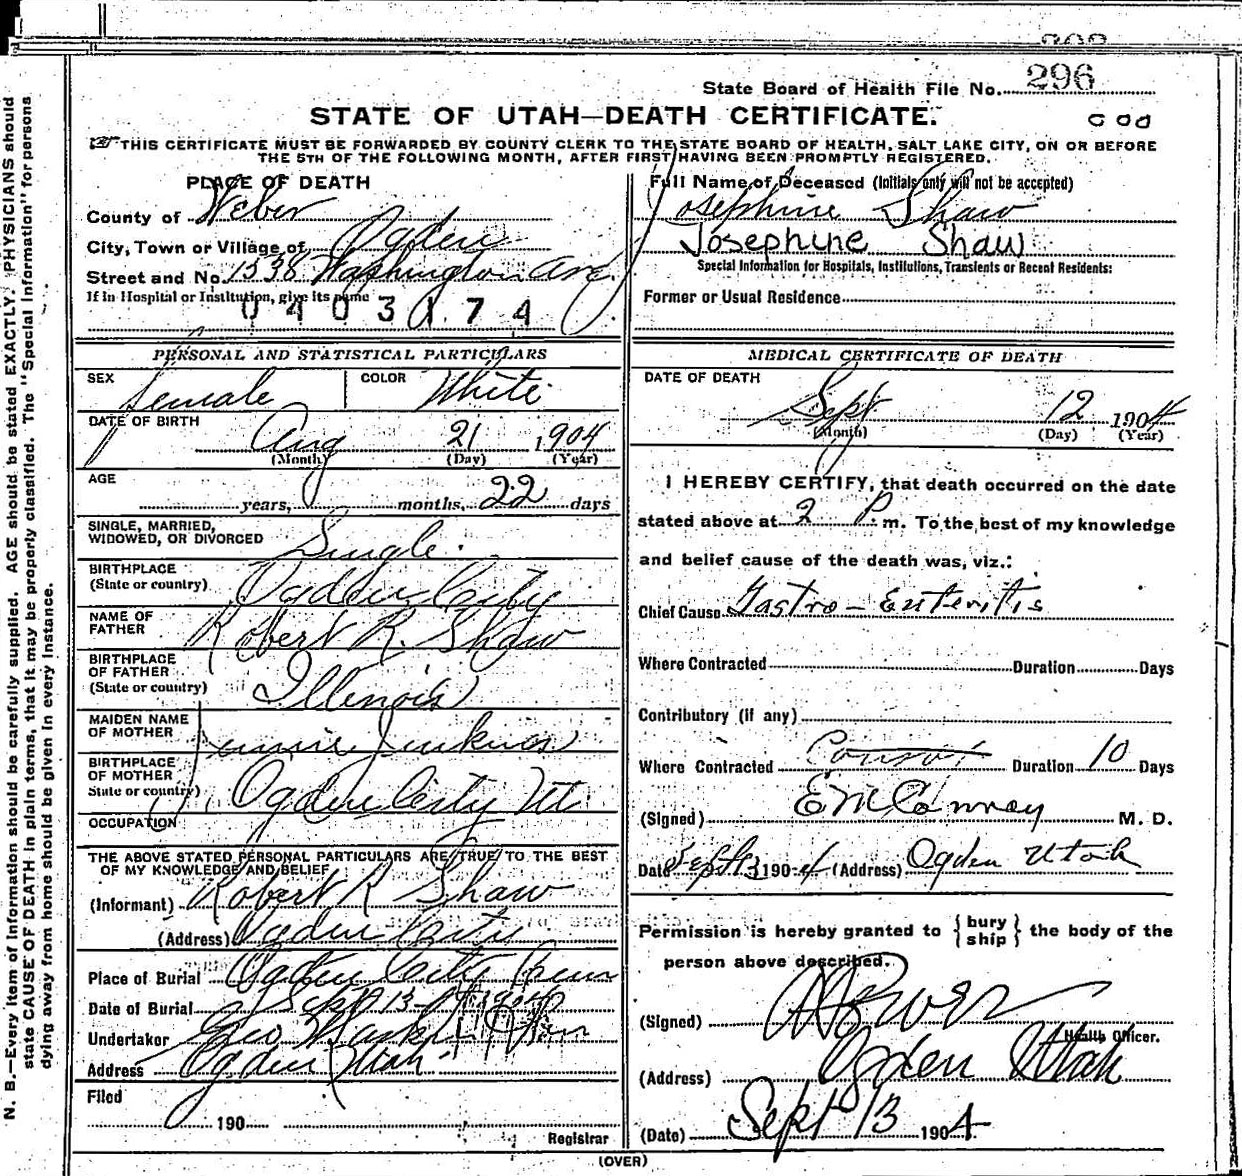 State Board of Health File No. 296
STATE OF UTAH—DEATH CERTIFICATE.
THIS CERTIFICATE MUST BE FORWARDED BY COUNTY CLERK TO THE STATE BOARD OF HEALTH, SALT LAKE CITY, ON OR BEFORE
THE 5TH OF THE FOLLOWING MONTH, AFTER FIRST HAVING BEEN PROMPTLY REGISTERED.
PLACE OF DEATH
County of Weber
City, Town or Village of Ogden
Street and No. 1538 Washington Ave
If in Hospital or Institution, give its name
0403174
Full Name of Deceased (Initials only will not be accepted)
Josephine Shaw
Josephine Shaw
Special Information for Hospitals, Institutions, Transients or Recent Residents:
Former or Usual Residence
PERSONAL AND STATISTICAL PARTICULARS
SEX Female COLOR White
DATE OF BIRTH
Aug 21 1904
(Month) (Day) (Year)
AGE
years, months, 22 days
SINGLE, MARRIED,
WIDOWED, OR DIVORCED Single.
BIRTHPLACE
(State or country) Ogden City
NAME OF
FATHER Robert R. Shaw
BIRTHPLACE
OF FATHER
(State or country) Illinois
MAIDEN NAME
OF MOTHER Jennie Jenkins
BIRTHPLACE
OF MOTHER
State or country) Ogden City Ut.
OCCUPATION
THE ABOVE STATED PERSONAL PARTICULARS ARE TRUE TO THE BEST
OF MY KNOWLEDGE AND BELIEF
(Informant) Robert R Shaw
(Address) Ogden City
Place of Burial Ogden City Cem
Date of Burial Sept 13
Undertaker Geo
Address Ogden Utah
Filed
190
Registrar
MEDICAL CERTIFICATE OF DEATH
DATE OF DEATH
Sept 12 1904
(Month) (Day) (Year)
I HEREBY CERTIFY, that death occurred on the date
stated above at 2 P. m. To the best of my knowledge
and belief cause of the death was, viz.:
Chief Cause Gastro-Enteritis
Where Contracted Duration Days
Contributory (if any)
Where Contracted Duration 10 Days
(Signed) E M Conroy M. D.
Date Sept 13 1904 (Address) Ogden Utah
Permission is hereby granted to {bury
ship} the body of the
person above described.
(Signed)
Health Officer.
(Address) Ogden Utah
(Date) Sept 13 1904
(OVER)
N. B.—Every item of information should be carefully supplied. AGE should be stated EXACTLY. PHYSICIANS should
state CAUSE OF DEATH in plain terms, that it may be properly classified. The "Special Information" for persons
dying away from home should be given in every instance.